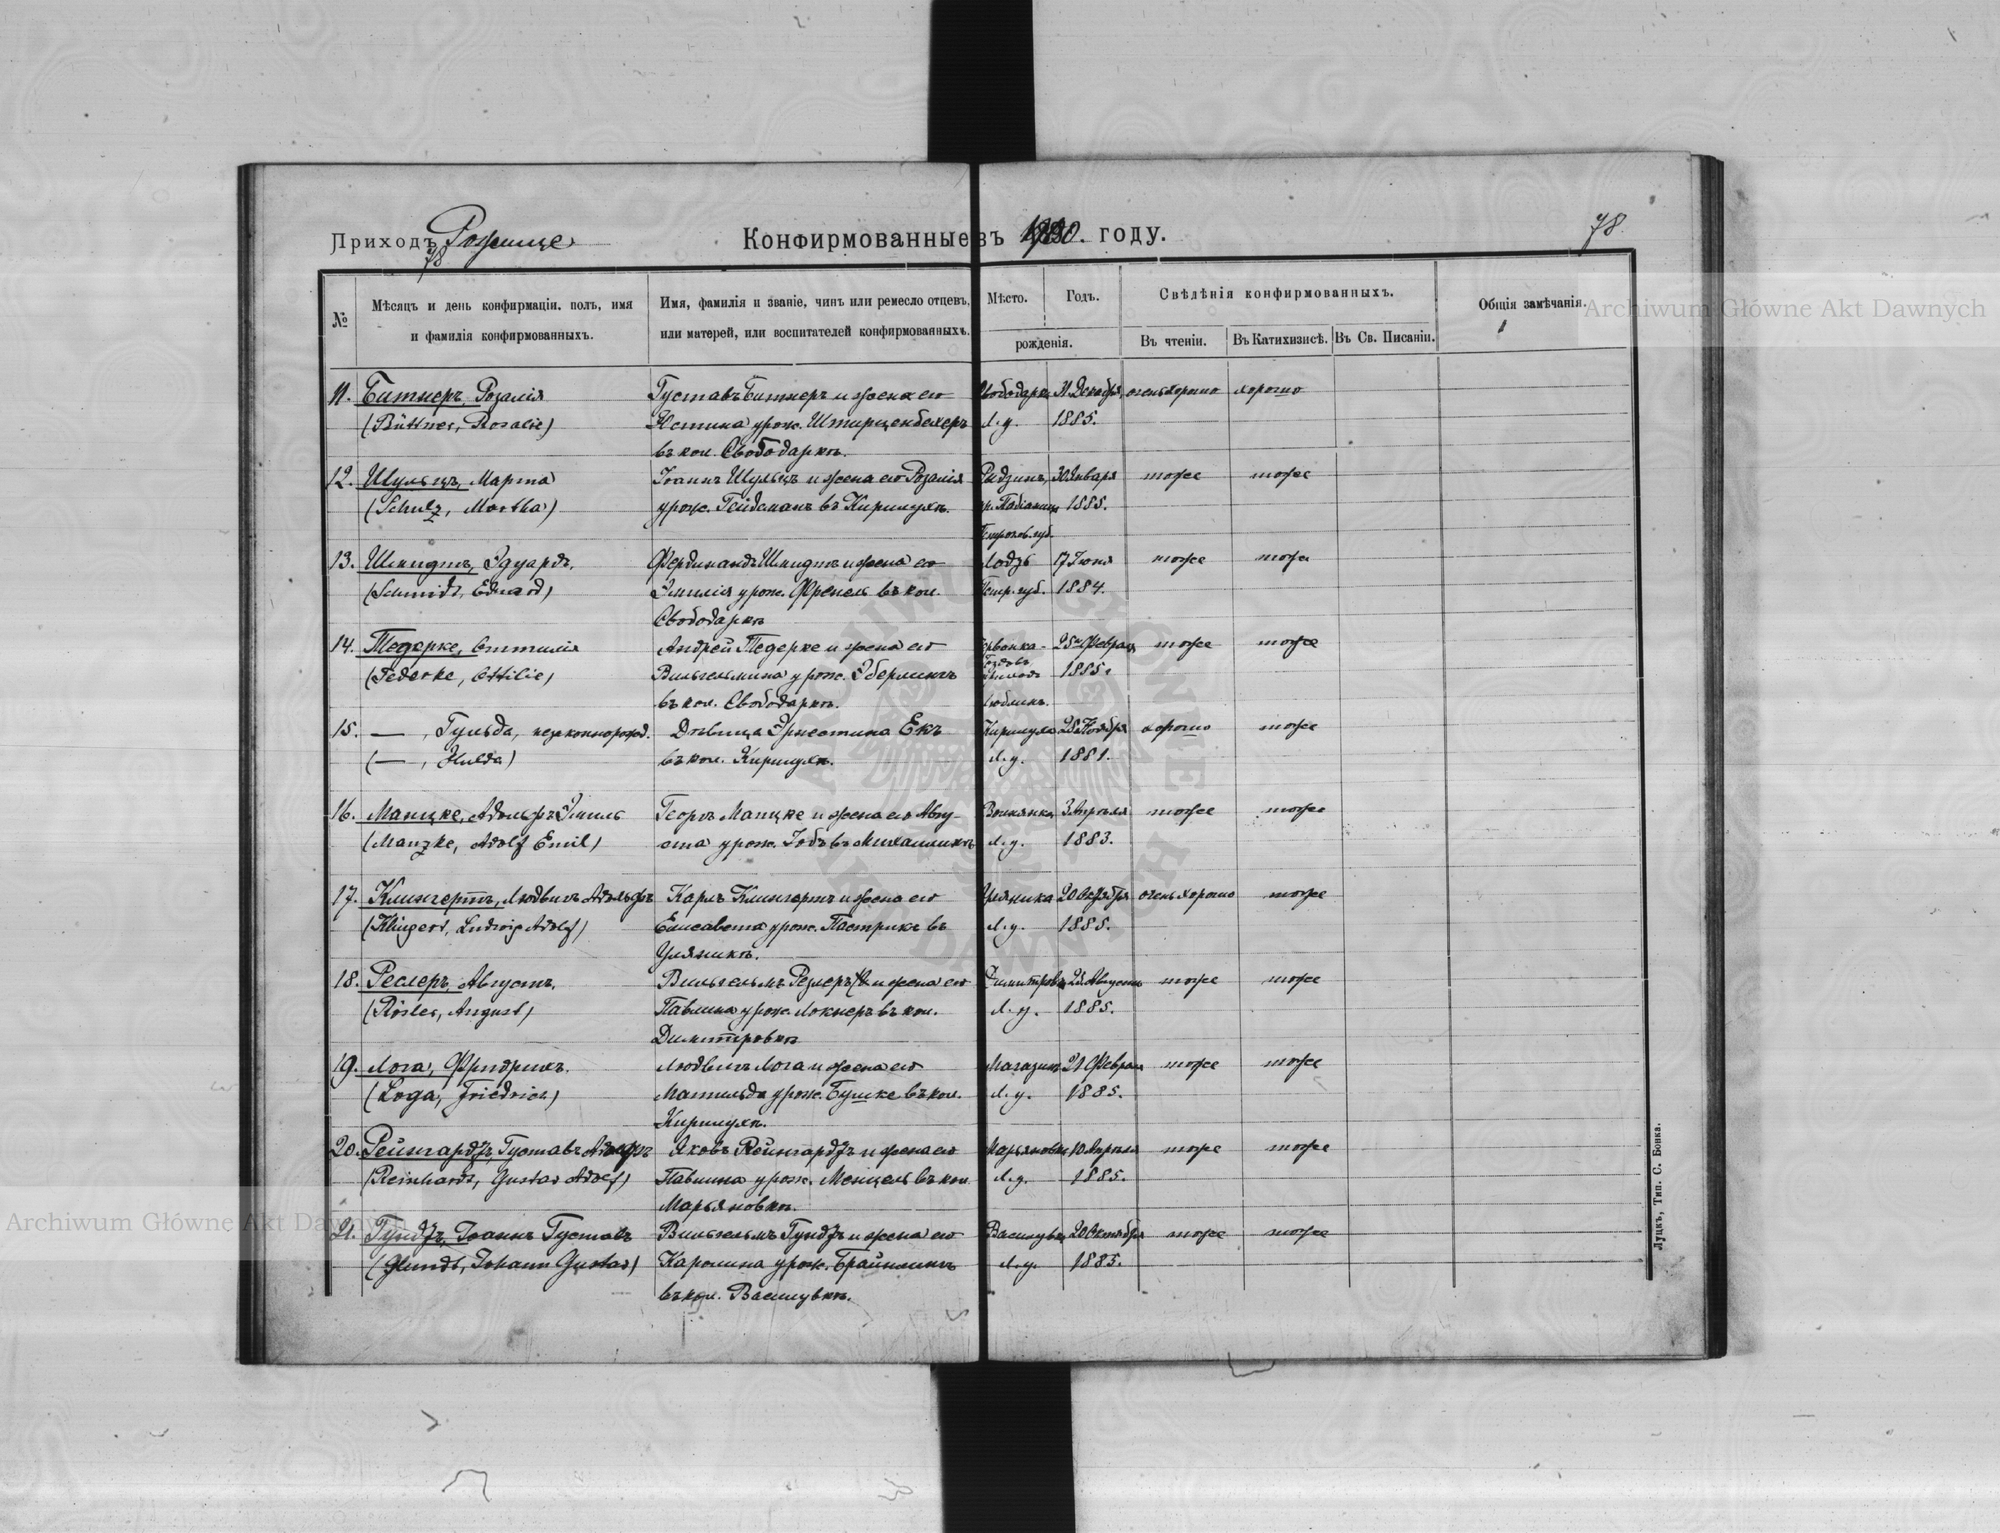 Приходъ Рожище
78
Конфирмованные въ году.
78
№
Мѣсяцъ и день конфирмаціи, полъ, имя
и фамилія конфирмованныхъ.
Имя, фамилія и званіе, чинъ или ремесло отцевъ,
или матерей, или воспитателей конфирмованныхъ.
Мѣсто.
Годъ.
рожденія.
Свѣдѣнія конфирмованныхъ.
Въ чтеніи.
Въ Катихизисѣ.
Въ Св. Писаніи.
Общія замѣчанія.
11. Битнеръ, Розалія Густавъ Битнеръ и жена его 31 Декабря очень хорошо хорошо
(Büttner, Rosalie) Юстина урож. Штирценбехеръ Л.у. 1885.
въ кол. Свободаркѣ.
12. Шульцъ, Марта Іоаннъ Шульцъ и жена его Розалія 30 Января тоже тоже
(Schulz, Martha) урож. Гейдеманъ въ Киримухъ. 1885.
Петроков. губ.
13. Шмидтъ, Эдуардъ. Фердинандъ Шмидтъ и жена его Лодзь 17 Іюня тоже тоже
(Schmidt, Eduard) Эмилія урож. Френель въ кол. Петр. губ. 1884.
Свободаркѣ
14. Тедерке, Оттилія Андрей Тедерке и жена его 25 Февраля тоже тоже
(Tederke, Ottilie) Вильгельмина урож. Эберлингъ 1885.
въ кол. Свободаркѣ. Люблин.
15. —, Гульда, незаконнорожд. Дѣвица Эрнестина Екъ 28 Ноября хорошо тоже
(—, Hulda) въ кол. Киримухъ. Л.у. 1881.
16. Манцке, Адольфъ Эмиль Георгъ Манцке и жена его Авгу- Волнянка 3 Апрѣля тоже тоже
(Manzke, Adolf Emil) ста урож. Гобъ въ Михалинкѣ Л.у. 1883.
17. Клингертъ, Людвигъ Адольфъ Карлъ Клингертъ и жена его Уляника 20 Октября очень хорошо тоже
(Klingert, Ludwig Adolf) Елисавета урож. Пастрикъ въ Л.у. 1885.
Уляникѣ.
18. Реслеръ, Августъ. Вильгельмъ Реслеръ и жена его Димитровка 25 Августа тоже тоже
(Rösler, August) Павлина урож. Локнеръ въ кол. Л.у. 1885.
Димитровкѣ
19. Лога, Фридрихъ. Людвигъ Лога и жена его Магазинъ 21 Февраля тоже тоже
(Loga, Friedrich) Матильда урож. Бушке въ кол. Л.у. 1885.
Киримухъ.
20. Рейнгардтъ, Густавъ Адольфъ Яковъ Рейнгардтъ и жена его Марьяновка 10 Апрѣля тоже тоже
(Reinhardt, Gustav Adolf) Павлина урож. Менцель въ кол. Л.у. 1885.
Марьяновкѣ.
21. Гундтъ, Іоаннъ Густавъ Вильгельмъ Гундтъ и жена его Василувка 20 Октября тоже тоже
(Hundt, Johann Gustav) Каролина урож. Брайнлингъ Л.у. 1885.
въ кол. Василувкѣ.
Луцкъ, Тип. С. Бонка.
Archiwum Główne Akt Dawnych
Archiwum Główne Akt Dawnych
ARCHIWUM GŁÓWNE AKT DAWNYCH